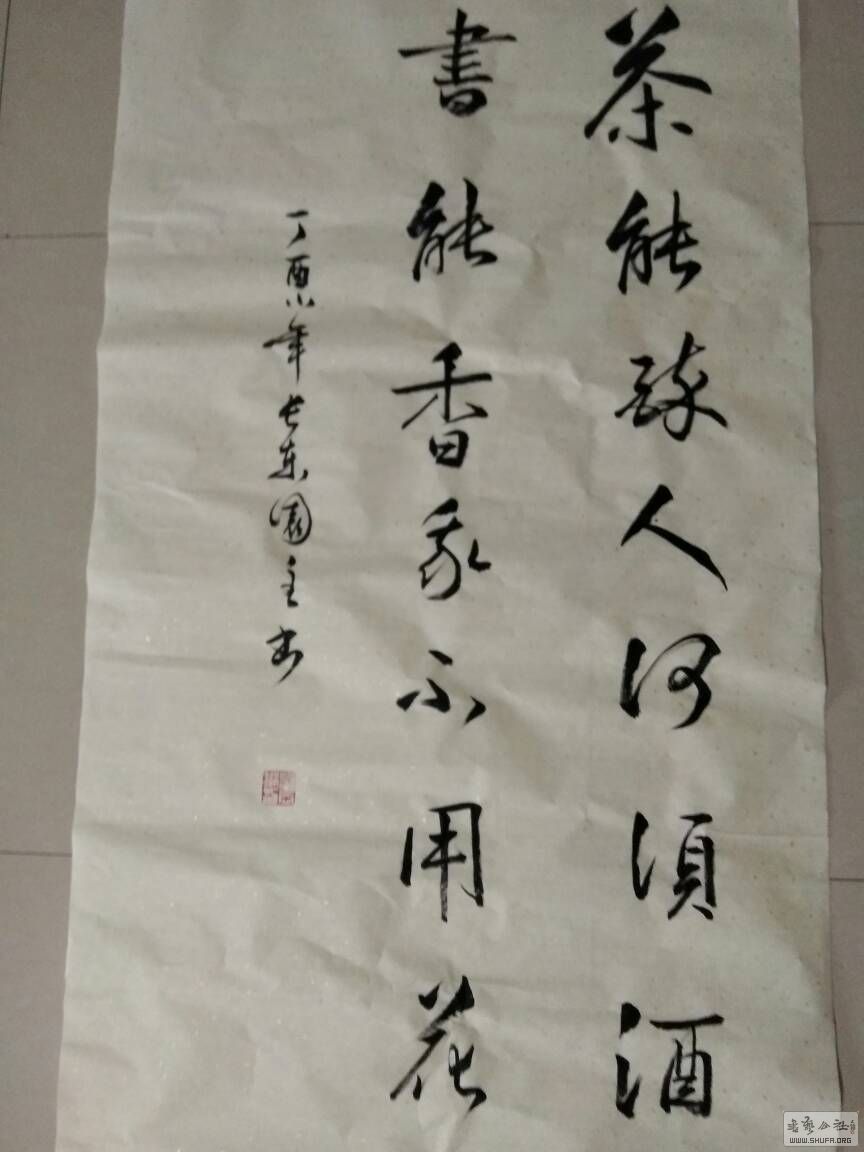 茶能醉人何須酒
書能香我不用花
丁酉小年长东園主书
書藝公社
WWW.SHUFA.ORG